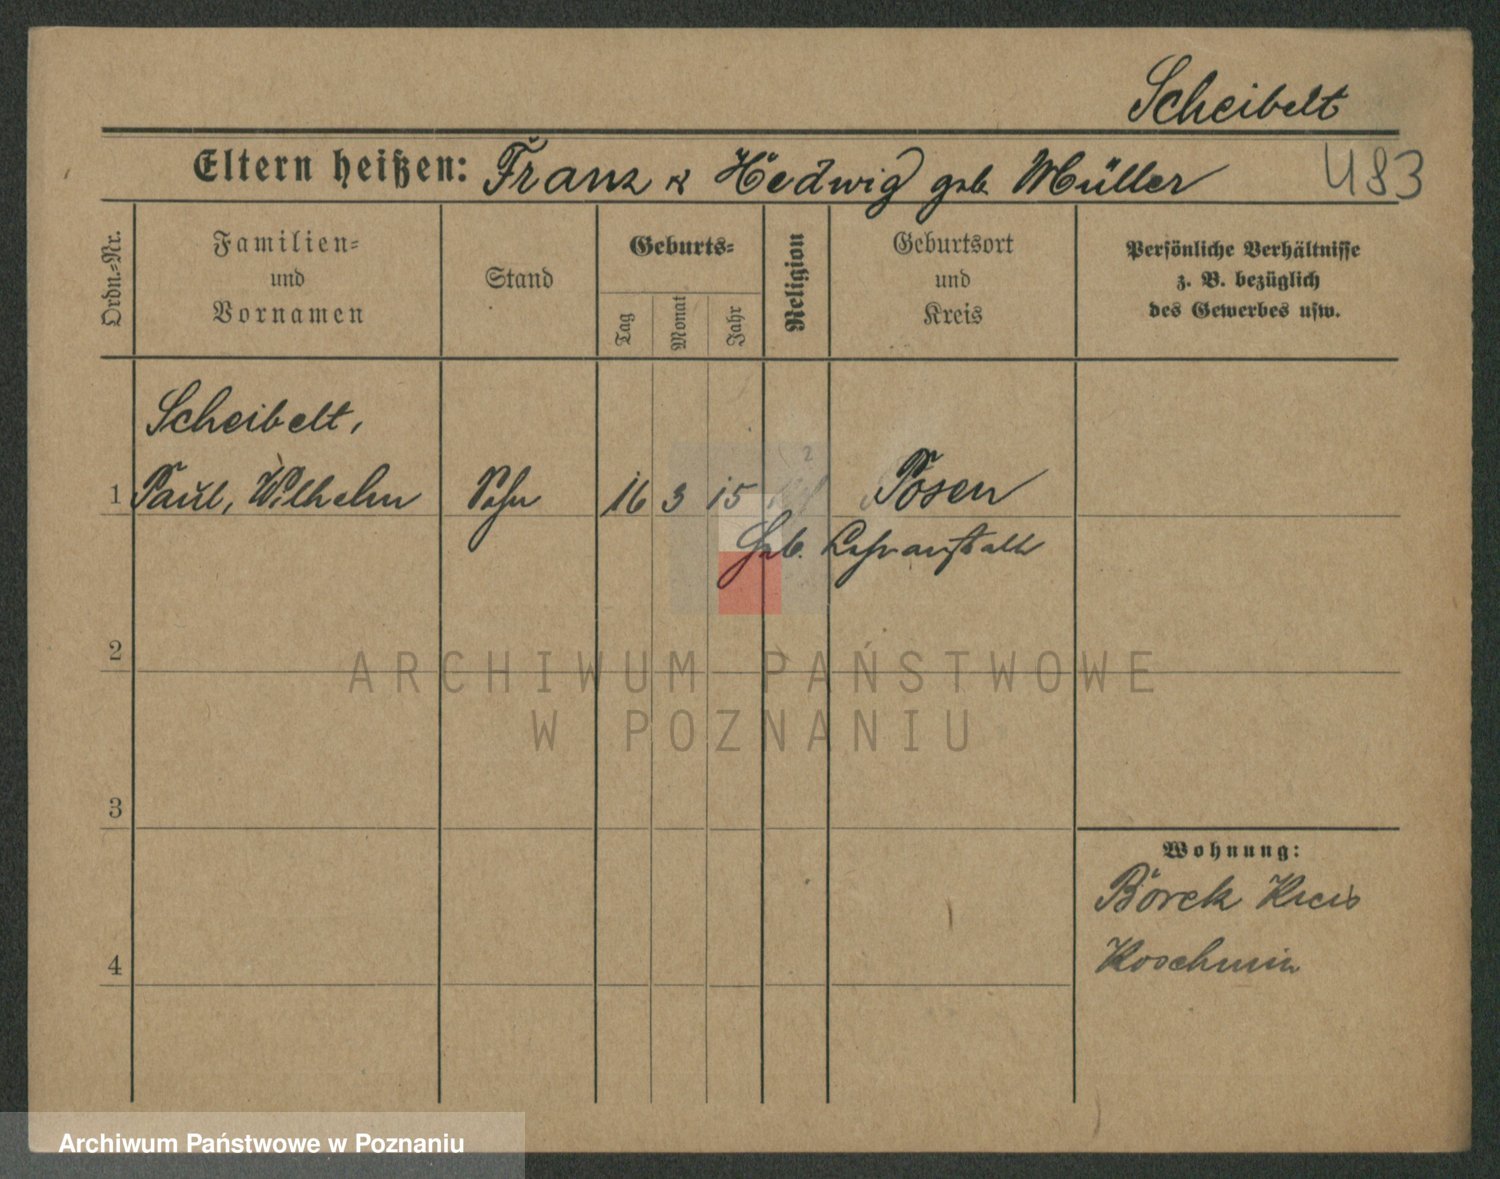 Scheibelt
Eltern heißen: Franz & Hedwig geb. Müller
483
Ordn.=Nr.
Familien=
und
Vornamen
Stand
Geburts=
Tag
Monat
Jahr
Religion
Geburtsort
und
Kreis
Persönliche Verhältnisse
z. B. bezüglich
des Gewerbes usw.
Scheibelt,
1 Paul, Wilhelm Sohn 16 3 15 Posen
Geb. Lehranstalt
2
ARCHIWUM PAŃSTWOWE
W POZNANIU
3
Wohnung:
Borek Kreis
4
Koschmin
Archiwum Państwowe w Poznaniu